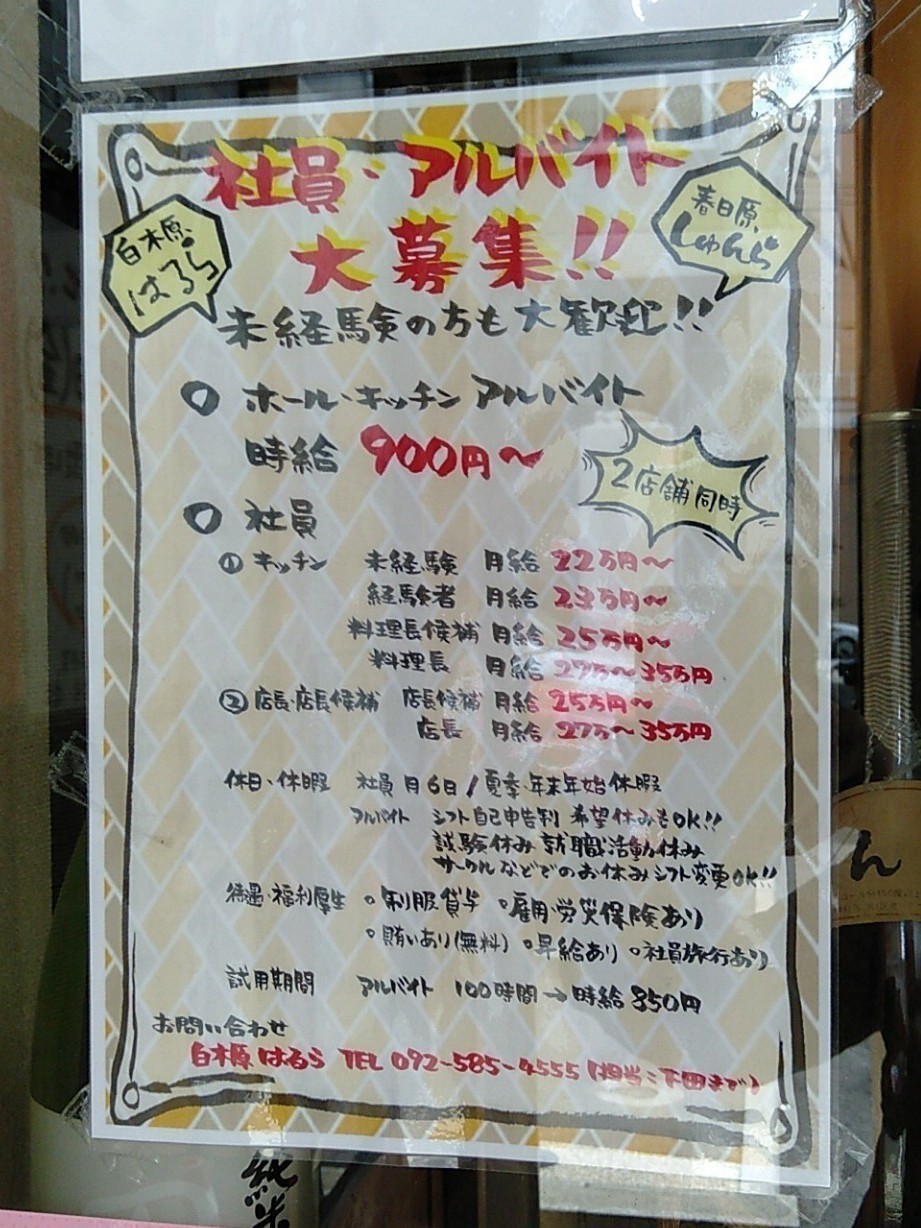 社員・アルバイト
大募集!!
白木原
はるら
春日原
しゅんら
未経験の方も大歓迎!!
○ ホール・キッチン アルバイト
時給 900円〜
2店舗同時
○ 社員
① キッチン 未経験 月給 22万円〜
経験者 月給 23万円〜
料理長候補 月給 25万円〜
料理長 月給 27万〜35万円
② 店長・店長候補 店長候補 月給 25万円〜
店長 月給 27万〜35万円
休日・休暇 社員 月6日/夏季・年末年始休暇
アルバイト シフト自己申告制 希望休みもOK!!
試験休み 就職活動休み
サークルなどでのお休み シフト変更OK!!
待遇・福利厚生 ○制服貸与 ○雇用・労災保険あり
○賄いあり(無料) ○昇給あり ○社員旅行あり
試用期間 アルバイト 100時間→時給 850円
お問い合わせ
白木原 はるら TEL 092-585-4555 (担当:下田まで)
ん
純米